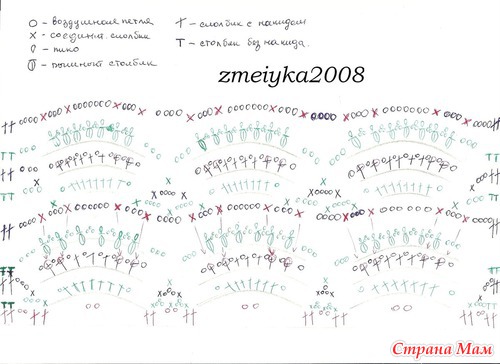 о - воздушная петля
х - соединит. столбик
- пико
- пышный столбик
† - столбик с накидом
т - столбик без накида.
zmeiyka2008
Страна Мам